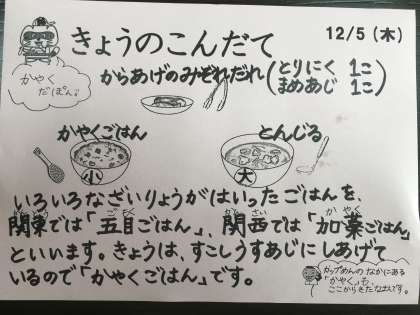 きょうのこんだて
12/5(木)
かやく
だぽん。
からあげのみぞれだれ(とりにく 1こ
まめあじ 1こ)
かやくごはん
とんじる
小
大
いろいろなざいりょうがはいったごはんを、
関東では「五目ごはん」、関西では「加薬ごはん」
といいます。きょうは、すこしうすあじにしあげて
いるので「かやくごはん」です。
カップめんのなかにある
「かやく」も、
ここからきたなまえです。